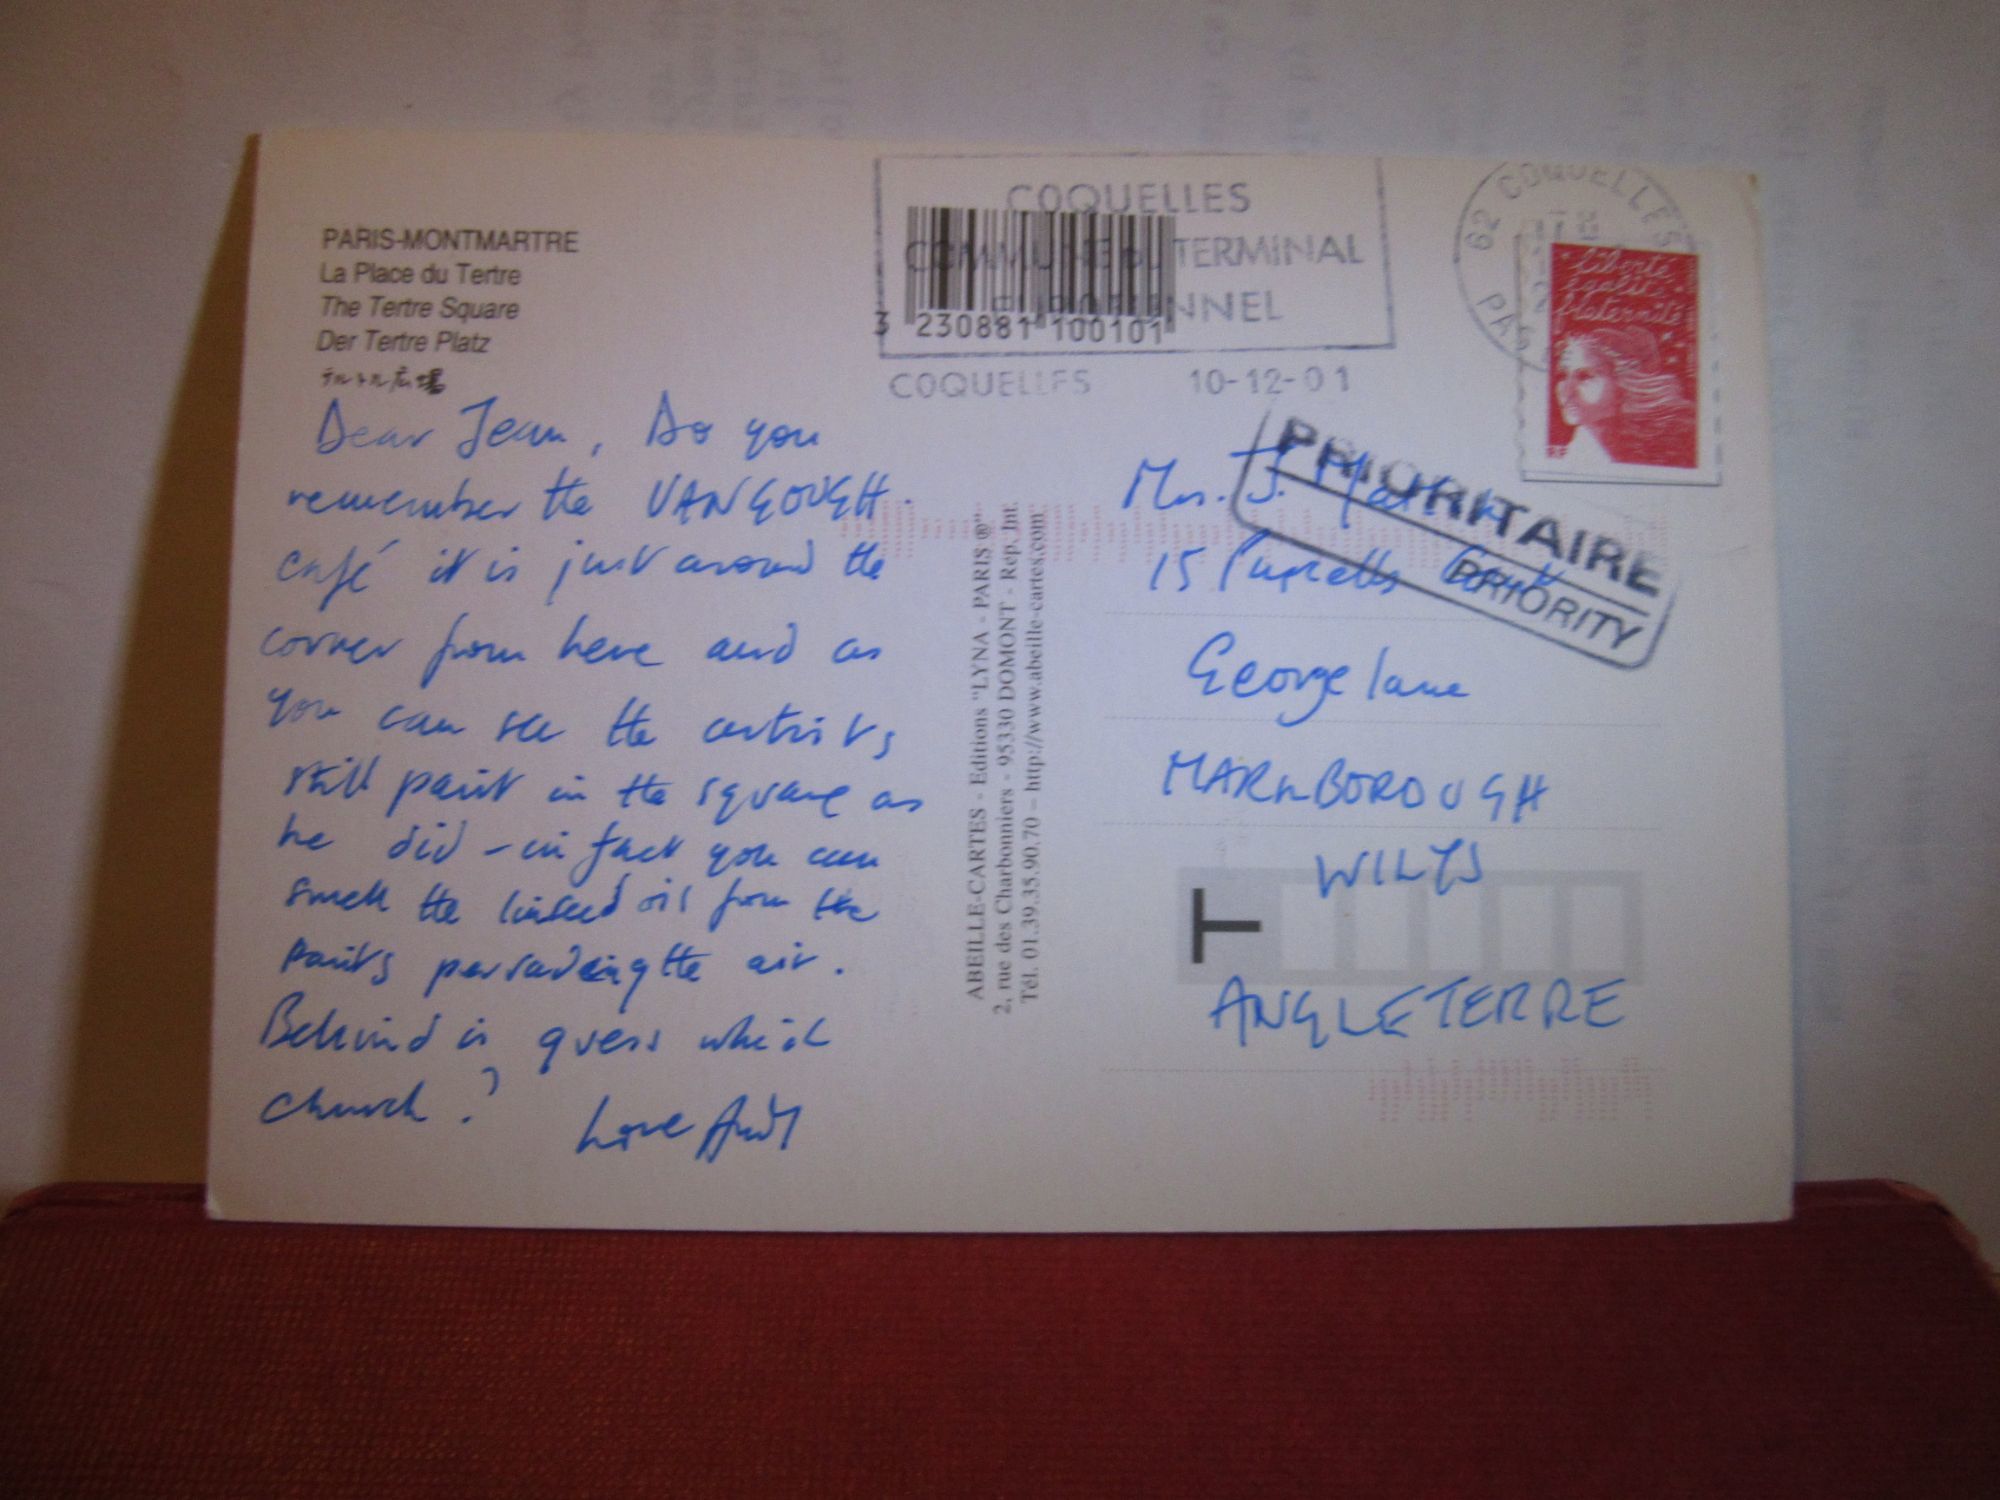 PARIS-MONTMARTRE
La Place du Tertre
The Tertre Square
Der Tertre Platz
テルトル広場
Dear Jean, Do you
remember the VANGOUGH.
café it is just around the
corner from here and as
you can see the artists
still paint in the square as
he did - in fact you can
smell the linseed oil from the
paints pervading the air.
Behind is guess which
church?
Love
COQUELLES
COMMUNE DU TERMINAL
3 230881 100101
COQUELLES 10-12-01
62 COQUELLES
PAS
liberté
égalité
fraternité
RF
PRIORITAIRE
PRIORITY
ABEILLE-CARTES - Editions "LYNA - PARIS ®"
2, rue des Charbonniers - 95330 DOMONT - Rep. Int.
Tél. 01.39.35.90.70 – http://www.abeille-cartes.com
Mrs. J.
15
George lane
MARLBOROUGH
WILTS
T
ANGLETERRE